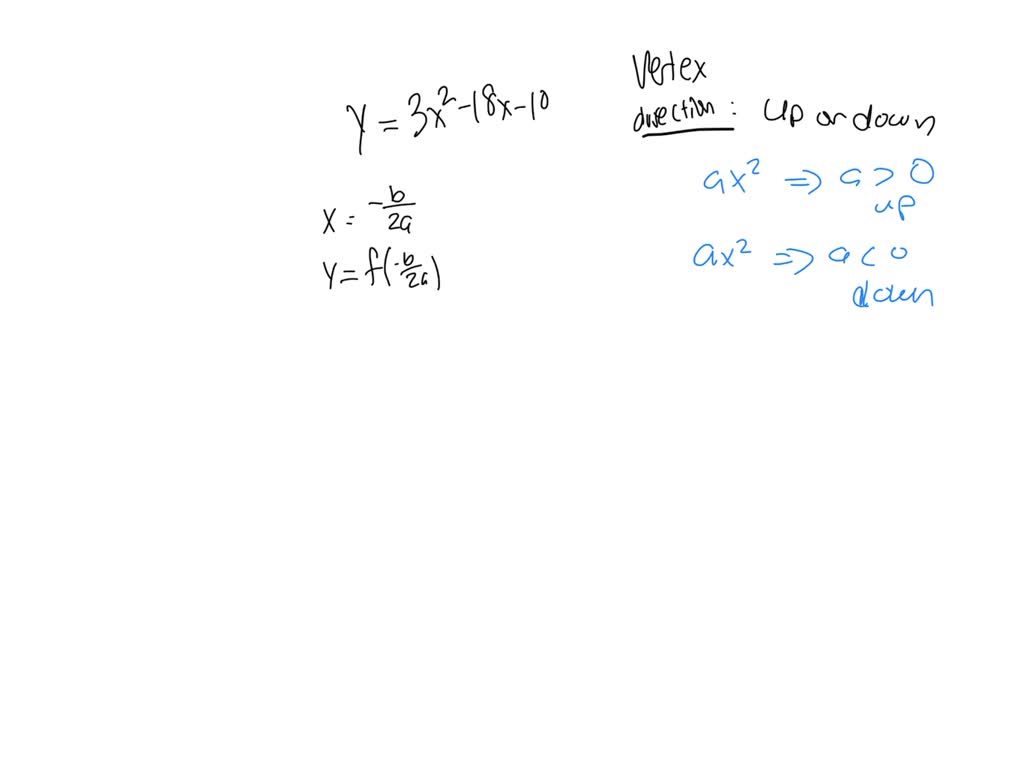 y = 3x² - 18x - 10
x = -b/2a
y = f(-b/2a)
Vertex
direction : Up or down
ax² ⇒ a > 0
up
ax² ⇒ a < 0
down